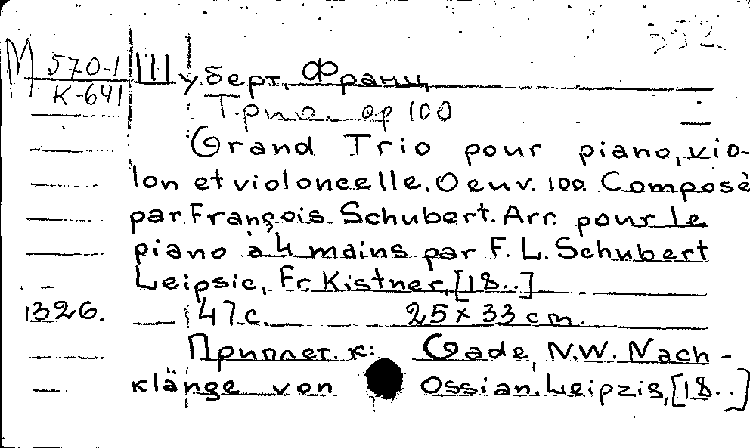 352
М 570-1 Шуберт, Франц
К-641 Трио. op 100
Grand Trio pour piano, vio-
lon et violoncelle. Oeuv. 100. Composé
par François Schubert. Arr. pour le
piano à 4 mains par F. L. Schubert
Leipsic, Fr. Kistner, [18..]
1326. 47 с. 25 x 33 cm.
Приплет. к: Gade, N.W. Nach-
klänge von Ossian. Leipzig, [18..]